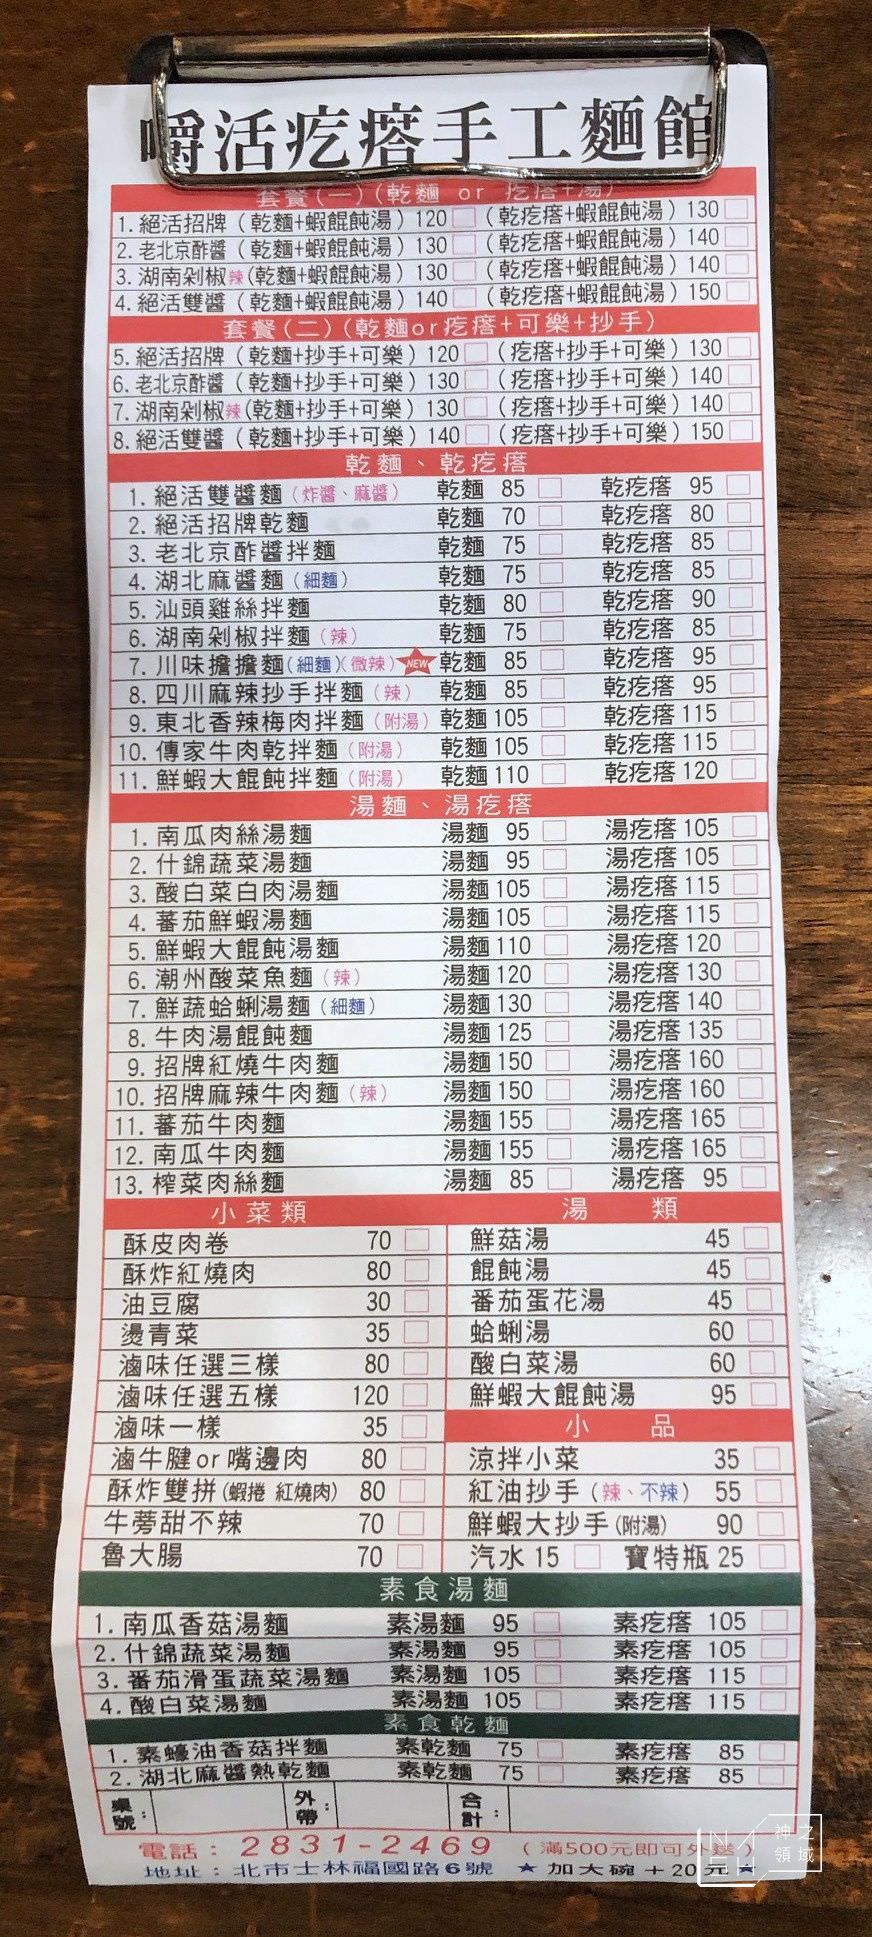 嚼活疙瘩手工麵館
套餐(一)(乾麵 or 疙瘩+湯)
1.絕活招牌(乾麵+蝦餛飩湯)120 (乾疙瘩+蝦餛飩湯)130
2.老北京酢醬(乾麵+蝦餛飩湯)130 (乾疙瘩+蝦餛飩湯)140
3.湖南剁椒辣(乾麵+蝦餛飩湯)130 (乾疙瘩+蝦餛飩湯)140
4.絕活雙醬(乾麵+蝦餛飩湯)140 (乾疙瘩+蝦餛飩湯)150
套餐(二)(乾麵or疙瘩+可樂+抄手)
5.絕活招牌(乾麵+抄手+可樂)120 (疙瘩+抄手+可樂)130
6.老北京酢醬(乾麵+抄手+可樂)130 (疙瘩+抄手+可樂)140
7.湖南剁椒辣(乾麵+抄手+可樂)130 (疙瘩+抄手+可樂)140
8.絕活雙醬(乾麵+抄手+可樂)140 (疙瘩+抄手+可樂)150
乾麵、乾疙瘩
1.絕活雙醬麵(炸醬、麻醬) 乾麵 85 乾疙瘩 95
2.絕活招牌乾麵 乾麵 70 乾疙瘩 80
3.老北京酢醬拌麵 乾麵 75 乾疙瘩 85
4.湖北麻醬麵(細麵) 乾麵 75 乾疙瘩 85
5.汕頭雞絲拌麵 乾麵 80 乾疙瘩 90
6.湖南剁椒拌麵(辣) 乾麵 75 乾疙瘩 85
7.川味擔擔麵(細麵)(微辣) NEW 乾麵 85 乾疙瘩 95
8.四川麻辣抄手拌麵(辣) 乾麵 85 乾疙瘩 95
9.東北香辣梅肉拌麵(附湯) 乾麵105 乾疙瘩115
10.傳家牛肉乾拌麵(附湯) 乾麵105 乾疙瘩115
11.鮮蝦大餛飩拌麵(附湯) 乾麵110 乾疙瘩120
湯麵、湯疙瘩
1.南瓜肉絲湯麵 湯麵 95 湯疙瘩105
2.什錦蔬菜湯麵 湯麵 95 湯疙瘩105
3.酸白菜白肉湯麵 湯麵105 湯疙瘩115
4.蕃茄鮮蝦湯麵 湯麵105 湯疙瘩115
5.鮮蝦大餛飩湯麵 湯麵110 湯疙瘩120
6.潮州酸菜魚麵(辣) 湯麵120 湯疙瘩130
7.鮮蔬蛤蜊湯麵(細麵) 湯麵130 湯疙瘩140
8.牛肉湯餛飩麵 湯麵125 湯疙瘩135
9.招牌紅燒牛肉麵 湯麵150 湯疙瘩160
10.招牌麻辣牛肉麵(辣) 湯麵150 湯疙瘩160
11.蕃茄牛肉麵 湯麵155 湯疙瘩165
12.南瓜牛肉麵 湯麵155 湯疙瘩165
13.榨菜肉絲麵 湯麵 85 湯疙瘩 95
小菜類
酥皮肉卷 70
酥炸紅燒肉 80
油豆腐 30
燙青菜 35
滷味任選三樣 80
滷味任選五樣 120
滷味一樣 35
滷牛腱or嘴邊肉 80
酥炸雙拼(蝦捲 紅燒肉) 80
牛蒡甜不辣 70
魯大腸 70
湯類
鮮菇湯 45
餛飩湯 45
番茄蛋花湯 45
蛤蜊湯 60
酸白菜湯 60
鮮蝦大餛飩湯 95
小品
涼拌小菜 35
紅油抄手(辣、不辣) 55
鮮蝦大抄手(附湯) 90
汽水15 寶特瓶25
素食湯麵
1.南瓜香菇湯麵 素湯麵 95 素疙瘩 105
2.什錦蔬菜湯麵 素湯麵 95 素疙瘩 105
3.番茄滑蛋蔬菜湯麵 素湯麵 105 素疙瘩 115
4.酸白菜湯麵 素湯麵 105 素疙瘩 115
素食乾麵
1.素蠔油香菇拌麵 素乾麵 75 素疙瘩 85
2.湖北麻醬熱乾麵 素乾麵 75 素疙瘩 85
桌號: 外帶: 合計:
電話:2831-2469(滿500元即可外送)
地址:北市士林福國路6號 ★加大碗+20元★
神之領域